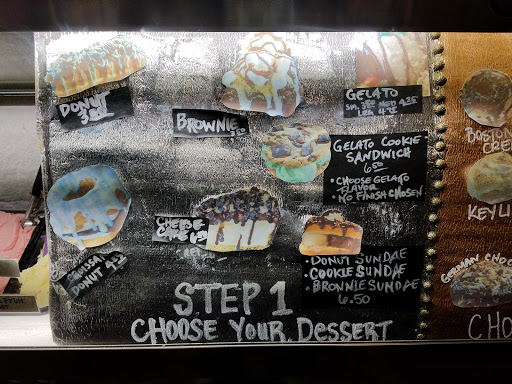 DONUT
BROWNIE
GELATO
GELATO COOKIE
SANDWICH
• CHOOSE GELATO
FLAVOR
• NO FINISH CHOSEN
CHEESE
CAKE
DONUT 4.25
• DONUT SUNDAE
• COOKIE SUNDAE
• BROWNIE SUNDAE
6.50
STEP 1
CHOOSE YOUR DESSERT
BOSTON
CRE
KEY LI
GERMAN CHOC
CHO